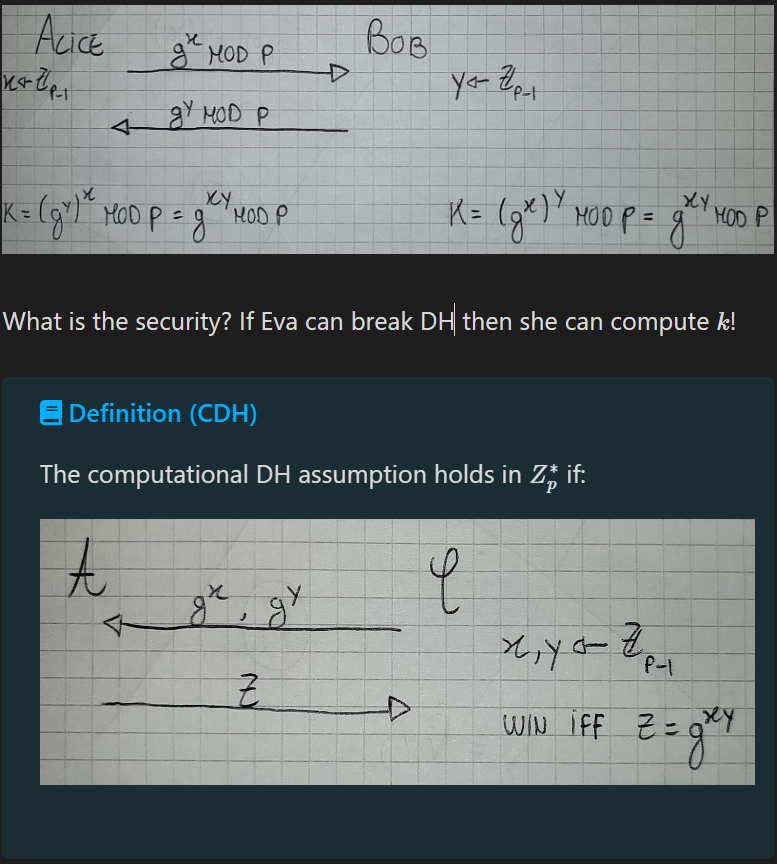 ALICE g^x MOD P BOB
x ← ℤ_{P-1} y ← ℤ_{P-1}
g^y MOD P
K = (g^y)^x MOD P = g^{xy} MOD P K = (g^x)^y MOD P = g^{xy} MOD P
What is the security? If Eva can break DH then she can compute k!
Definition (CDH)
The computational DH assumption holds in Z_p^* if:
A C
g^x, g^y
x, y ← ℤ_{P-1}
Z
WIN IFF Z = g^{xy}